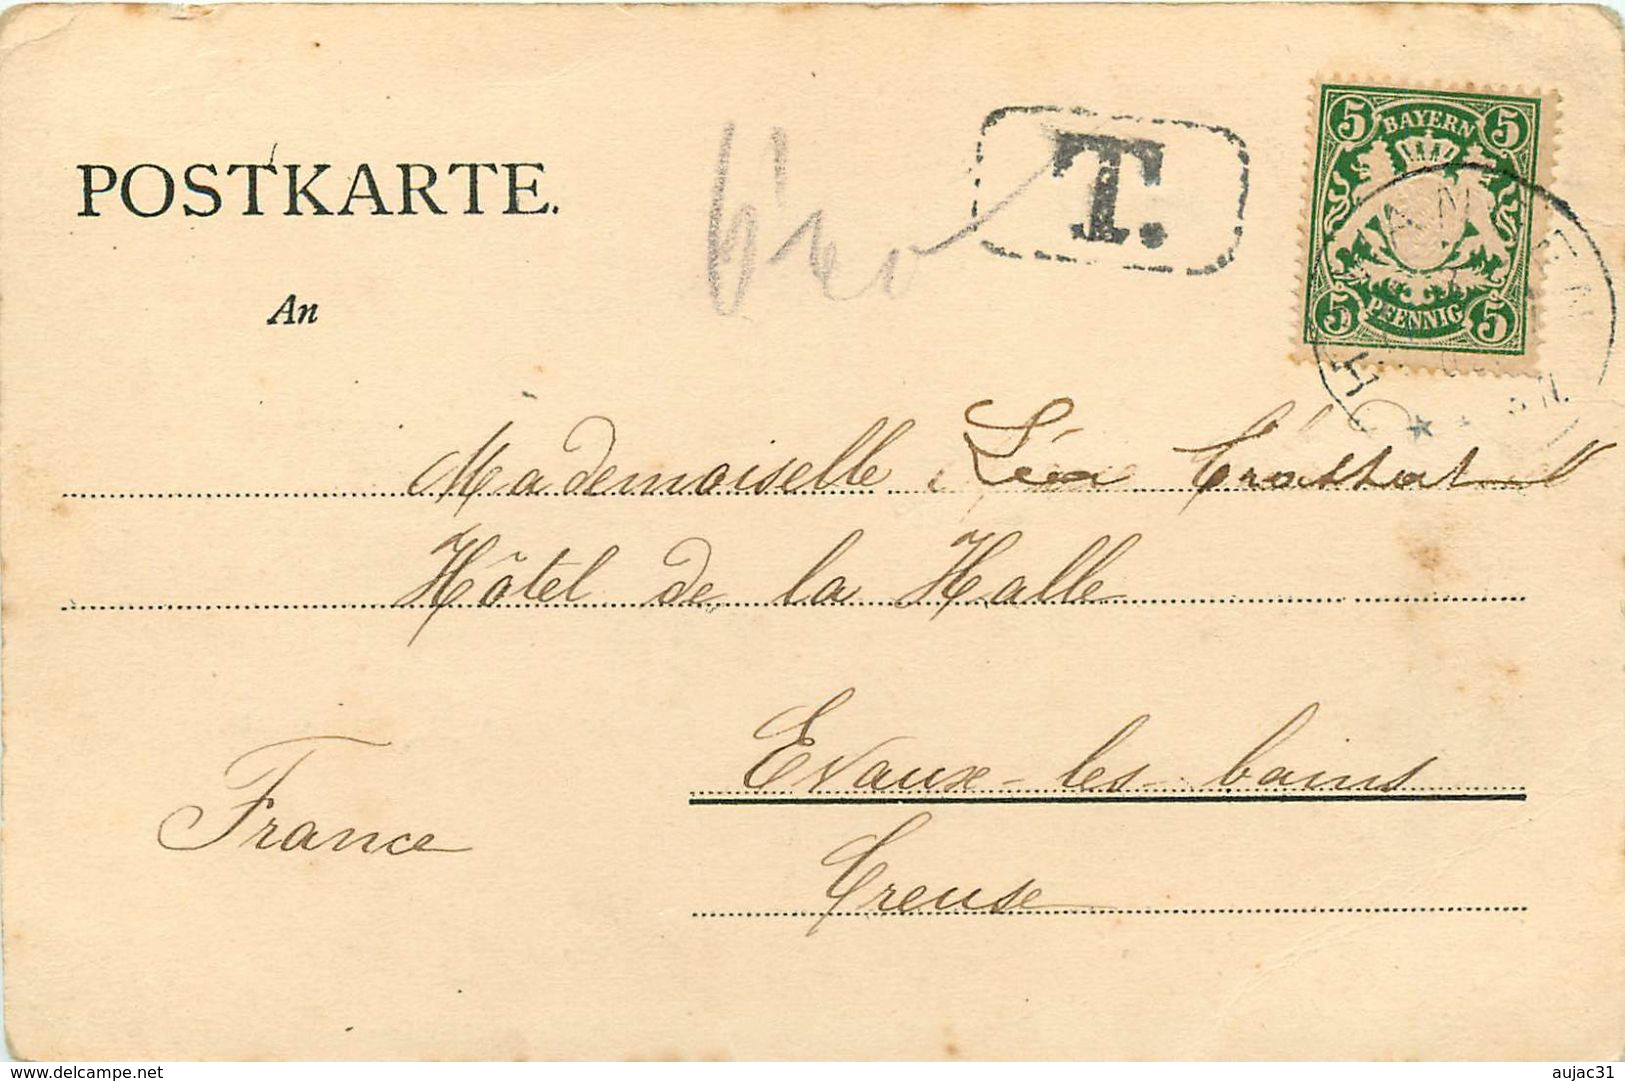 POSTKARTE.
T.
5 BAYERN 5
5 PFENNIG 5
An
Mademoiselle Léa
Hôtel de la Halle
Evaux-les-bains
France
Creuse
www.delcampe.net
aujac31